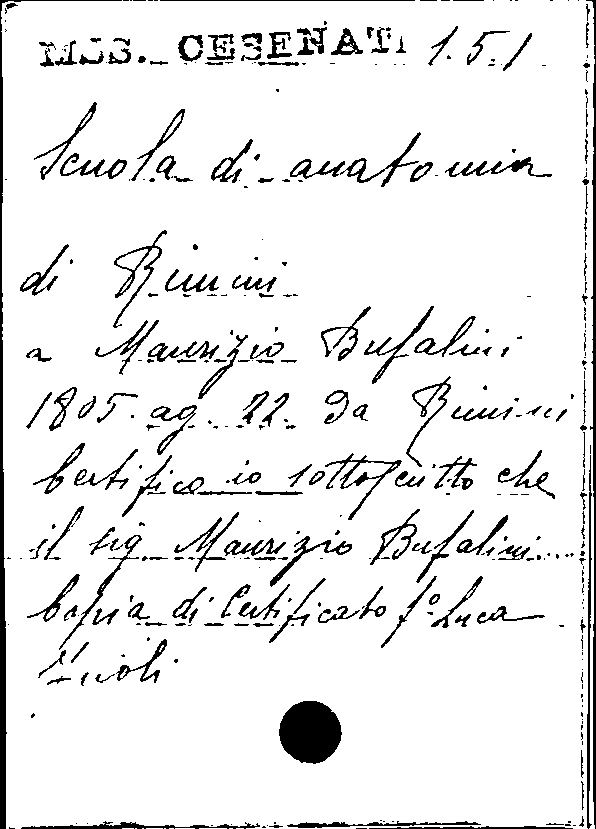 MSS. CESENATI 1.5.1
Scuola di anatomia
di Rimini
a Maurizio Bufalini
1805. ag. 22. Da Rimini
Certifico io sottoscritto che
il sig. Maurizio Bufalini....
Copia di Certificato fº Luca